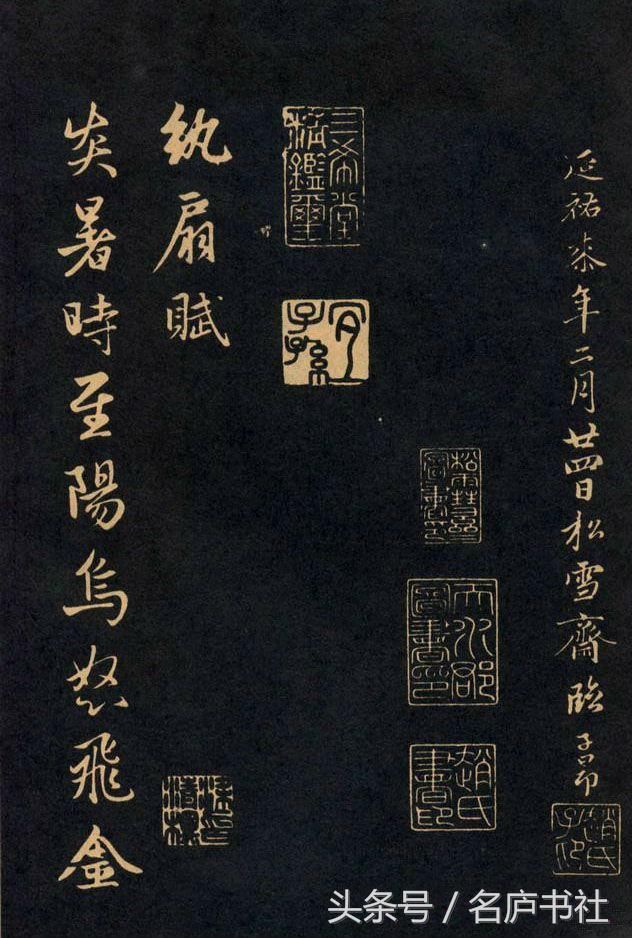 延祐柒年二月廿四日松雪齋臨子昂
趙氏子昂
松雪齋圖書印
天水郡圖書印
趙氏書印
三希堂精鑑璽
宜子孫
紈扇賦
炎暑時至陽烏怒飛金
头条号 / 名庐书社